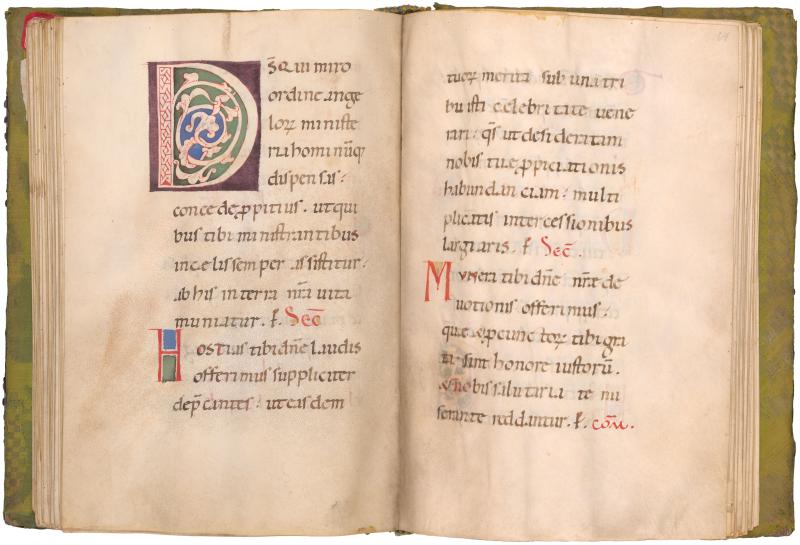 Dꝯ Qui miro
ordine ange
loꝝ ministe
ria hominūq;
dispensas:
concede ꝓpitius. ut qui
bus tibi ministrantibus
in celis semper assistitur:
ab his in terra nr̄a uita
muniatur. ꝑ. Sec̄
Hostias tibi dn̄e laudis
offerimus suppliciter
dep̄cantes: ut easdem
tuoꝝ merita sub una tri
buisti celebritate uene
rari: qs̄ ut desideratam
nobis tuę ꝓpiciationis
habundanciam: multi
plicatis intercessionibus
largiaris. ꝑ. Sec̄
Munera tibi dn̄e nr̄ae de
uotionis offerimus:
tibi gra
ta sint honore iustorū.
& nobis salutaria te mi
serante reddantur. ꝑ. com̄.